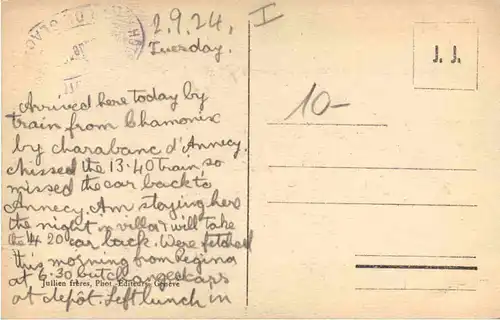 2.9.24.
Tuesday.
I
J. J.
10-
Arrived here today by
train from Chamonix
by charabanc d'Annecy.
Missed the 13.40 train so
missed the car back to
Annecy. Am staying here
the night villa & will take
the 14.20 car back. Were fetched
this morning from Regina
at 6.30 but changed cars
at depôt. Left lunch in
Jullien frères, Phot.-Editeurs, Genève